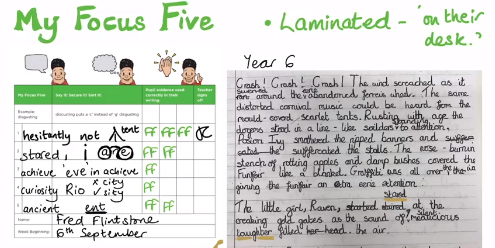 My Focus Five
• Laminated - 'on their desk.'
Year 6
My Focus Five
Say it! Secure it! Sort it!
Pupil evidence used correctly in their writing
Teacher signs off
Example: disgusting
discusting puts a 'c' instead of 'g' disgusting
hesitantly not tent FF FF FF
stared i are FF FF
achieve 'eve in achieve FF
curiosity Rio city sity FF
ancient ent FF FF
Name: Fred Flintstone
Week Beginning: 6th September
Crash! Crash! Crash! The wind screached as it
around the abandoned ferris wheel. The same
distorted carnival music could be heard from the
mould-covered, scarlet tents. Rusting with age the
dogens stood in a line - like soldiers to attention.
Poison Ivy smothered the ripped banners and
the suffercated the stalls. The nose-burnin
stench of rotting apples and damp bushes covered the
Funfair like a blanket. Graffiti was all over the
giving the funfair an extra eerie atention.
stand
The little girl, Raven, started stared at the
creaking gold gates as the sound of malicious
laughter filled her head. the air.